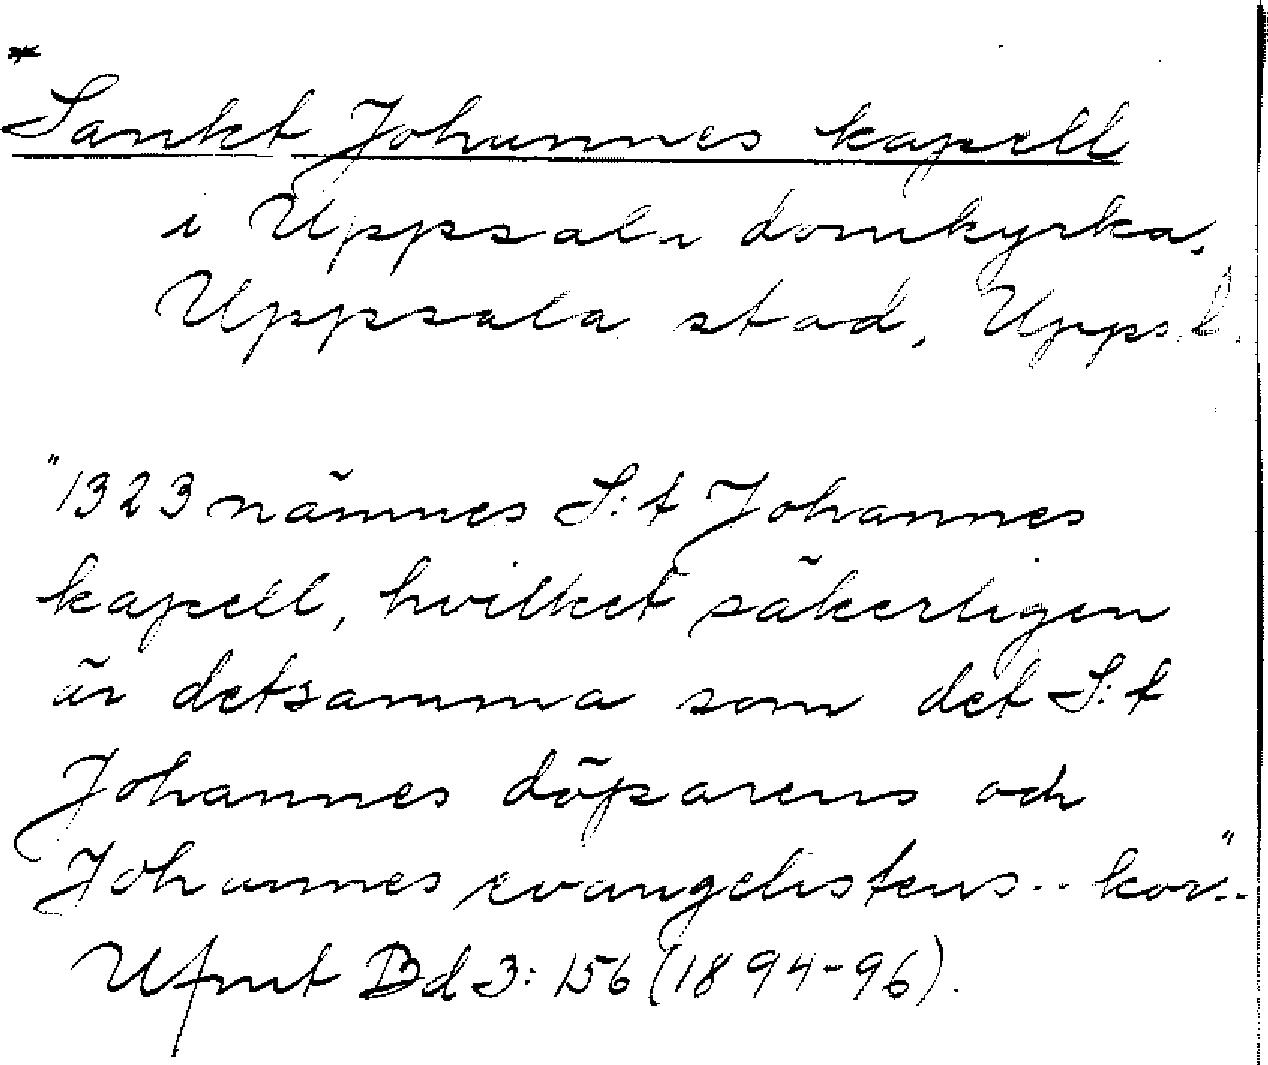 Sankt Johannes kapell
i Uppsala domkyrka,
Uppsala stad, Uppsl.
"1323 nämnes S:t Johannes
kapell, hvilket säkerligen
är detsamma som det S:t
Johannes döparens och
Johannes evangelistens .. kor.."
Ufmt Bd 3: 156 (1894-96).